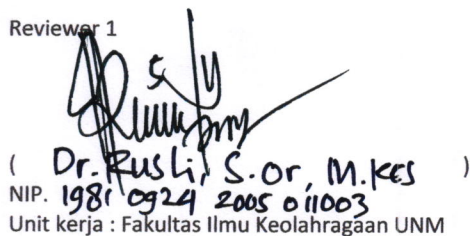 Reviewer 1
( Dr. Rusli, S.Or, M.Kes )
NIP. 1981 0924 2005 011003
Unit kerja : Fakultas Ilmu Keolahragaan UNM